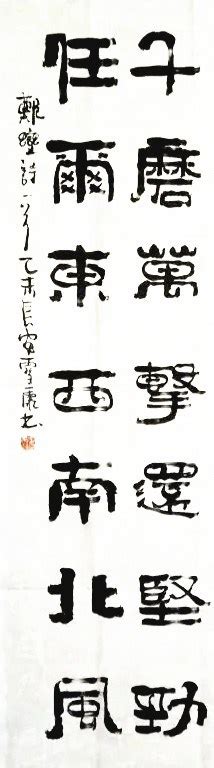 千磨萬擊還堅勁
任爾東西南北風
鄭燮詩 乙未長安